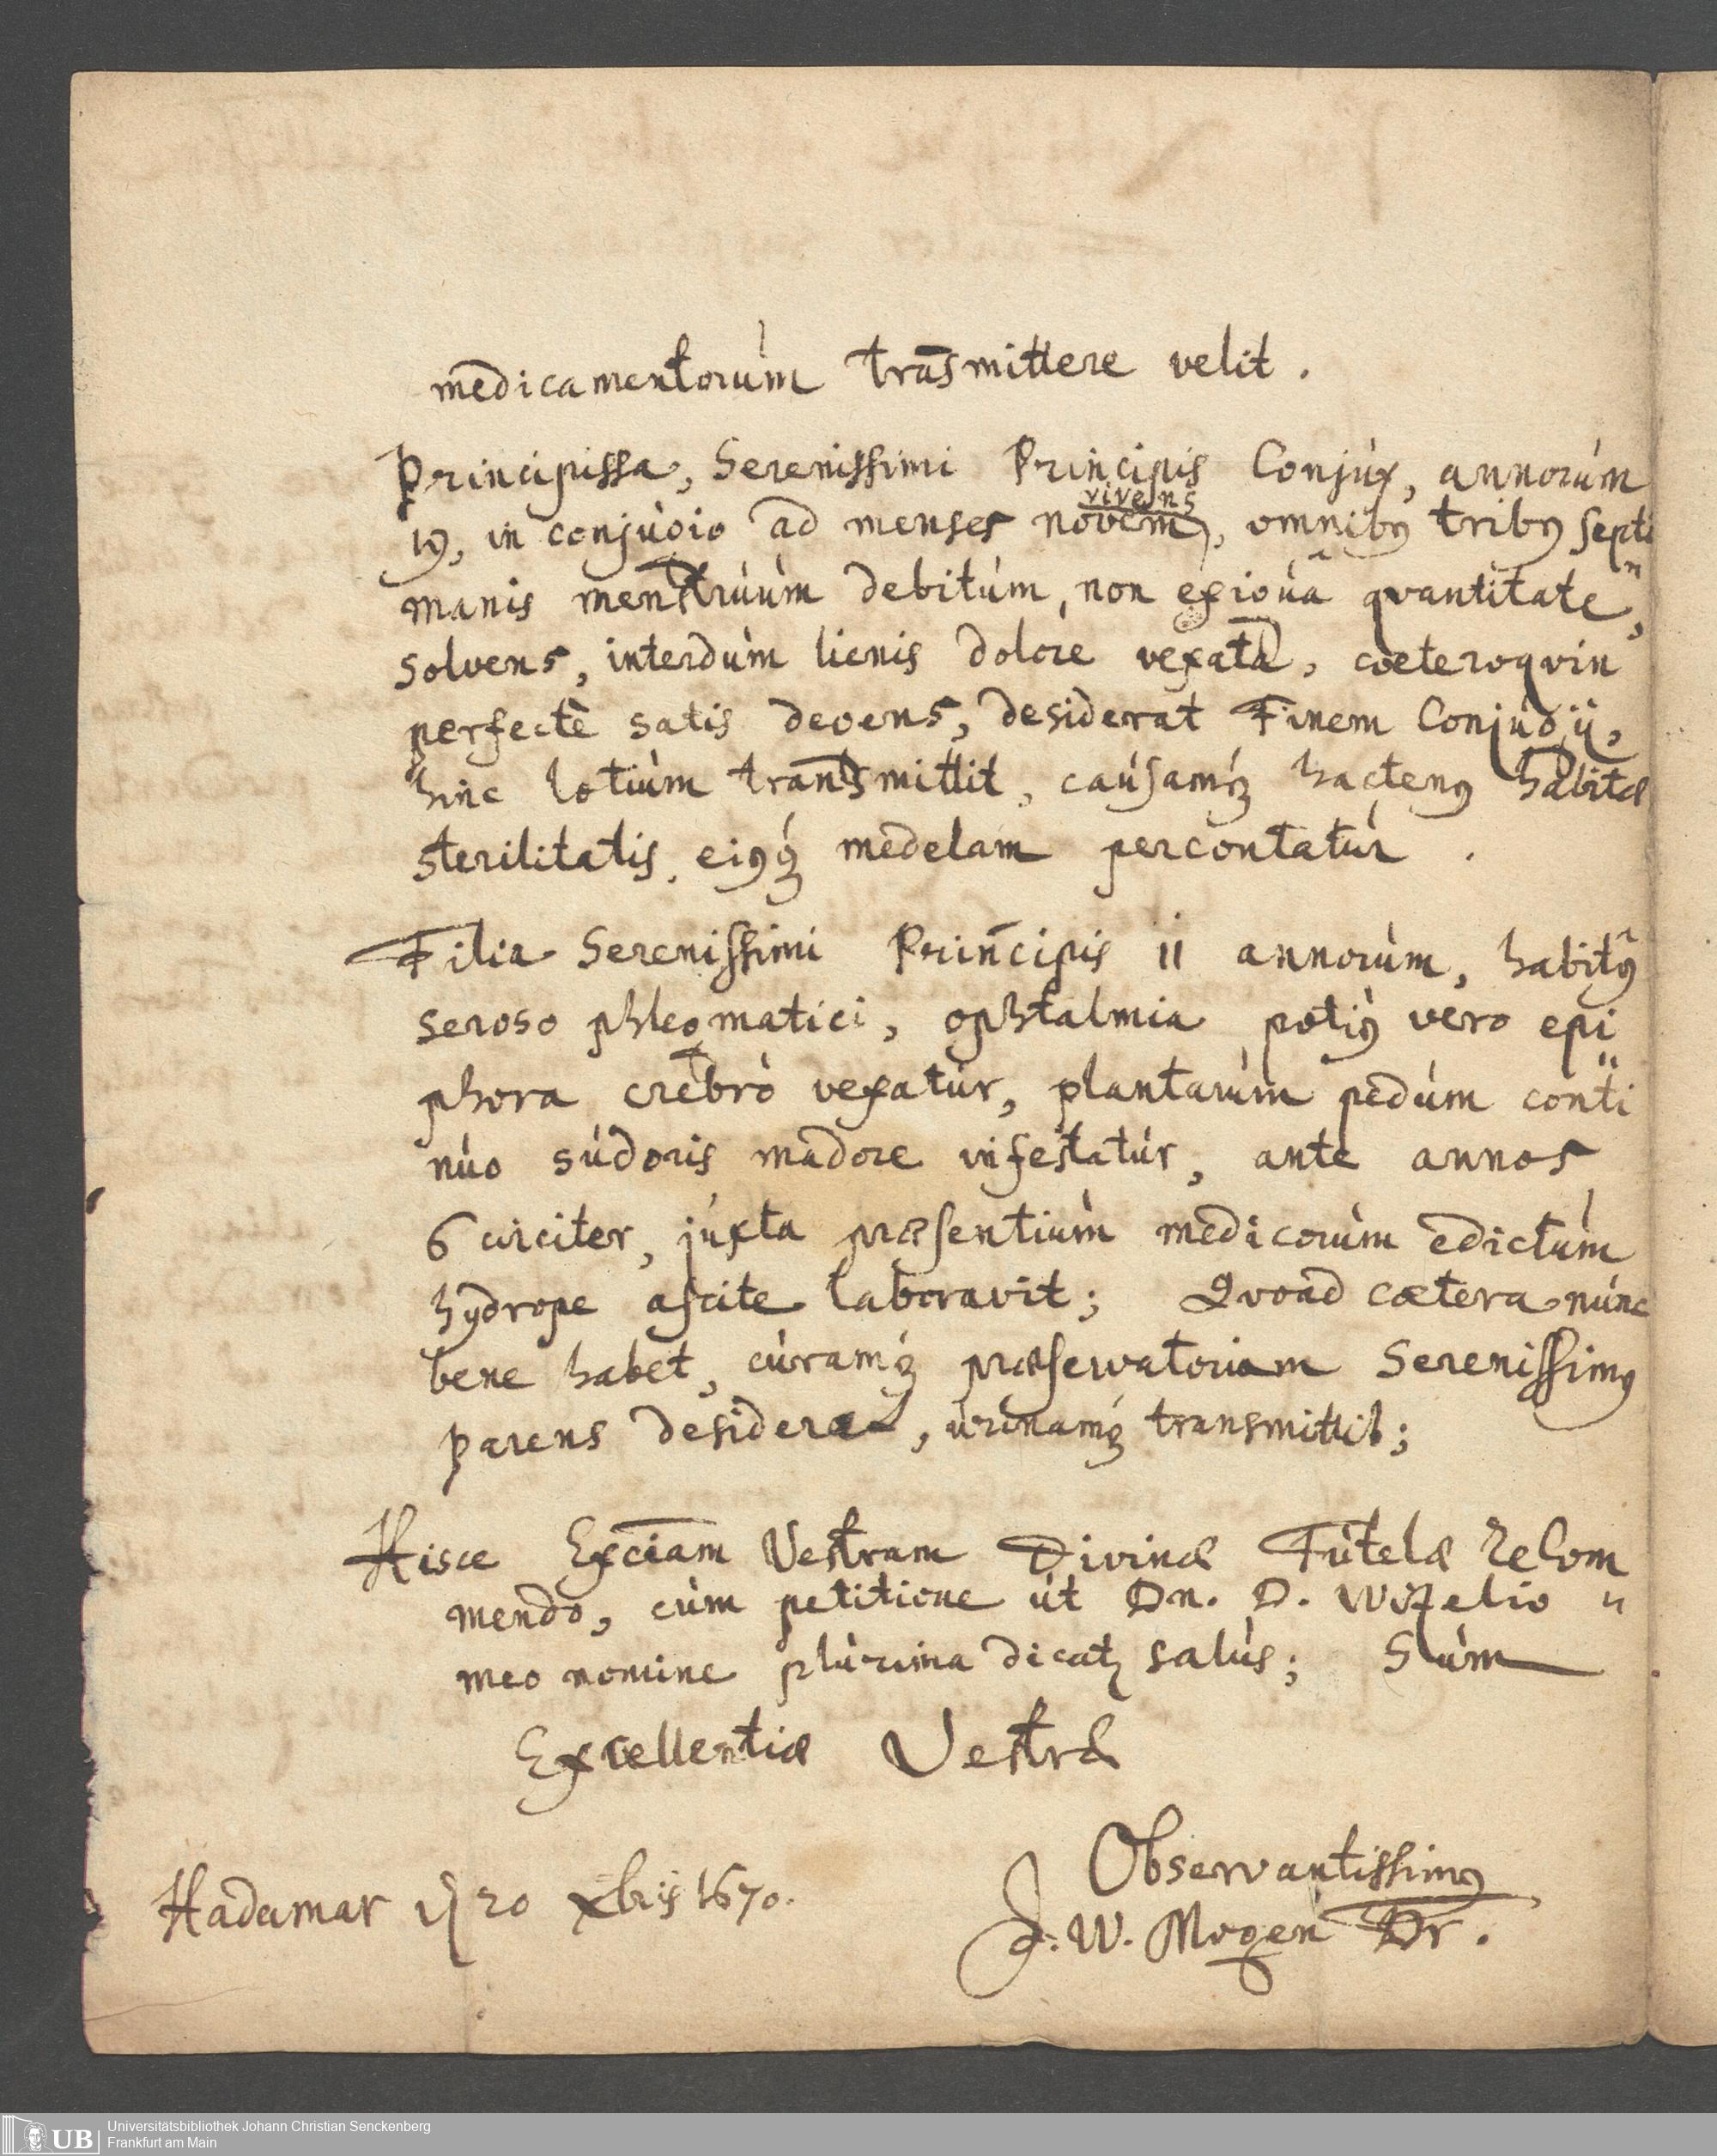 medicamentorúm trāsmittere velit.
Principissa, Serenissimi Principis Conjúx, annorúm
19, in conjúgio ad menses novem vivens, omnibꝰ tribꝰ septi
manis menstrúúm debitúm, non exigúâ qvantitate,
solvens, interdúm lienis dolore vexata, coeteroqvin
perfectè satis degens, desiderat Finem Conjúgÿ,
hinc lotiúm transmittit, caúsamqꝫ hactenꝰ habitæ
sterilitatis, ejꝰqꝫ medelam percontatúr.
Filia Serenissimi Principis 11 annorúm, habitꝰ̂
seroso phlegmatici, ophtalmia potiꝰ vero epi
phora crebrò vexatúr, plantarúm pedúm conti
núo súdoris madore infestatúr, ante annos
6 circiter, júxta præsentiúm medicorúm edictúm
hydrope ascite laboravit; Qvoad cætera núnc
bene habet, cúramqꝫ præservatoriam Serenissimꝰ
parens desiderat, úrinamqꝫ transmittit;
Hisce Exc̄iam Vestram Divinæ Tútelæ reCom
mendo, cúm petitione út Dn. D. Witzelio
meo nomine plúrima dicatꝫ salús; Súm
Excellentiæ Vestræ
Observantissimꝰ
J. W. Mogen Dr.
Hadamar 20 xbris 1670.
UB
Universitätsbibliothek Johann Christian Senckenberg
Frankfurt am Main